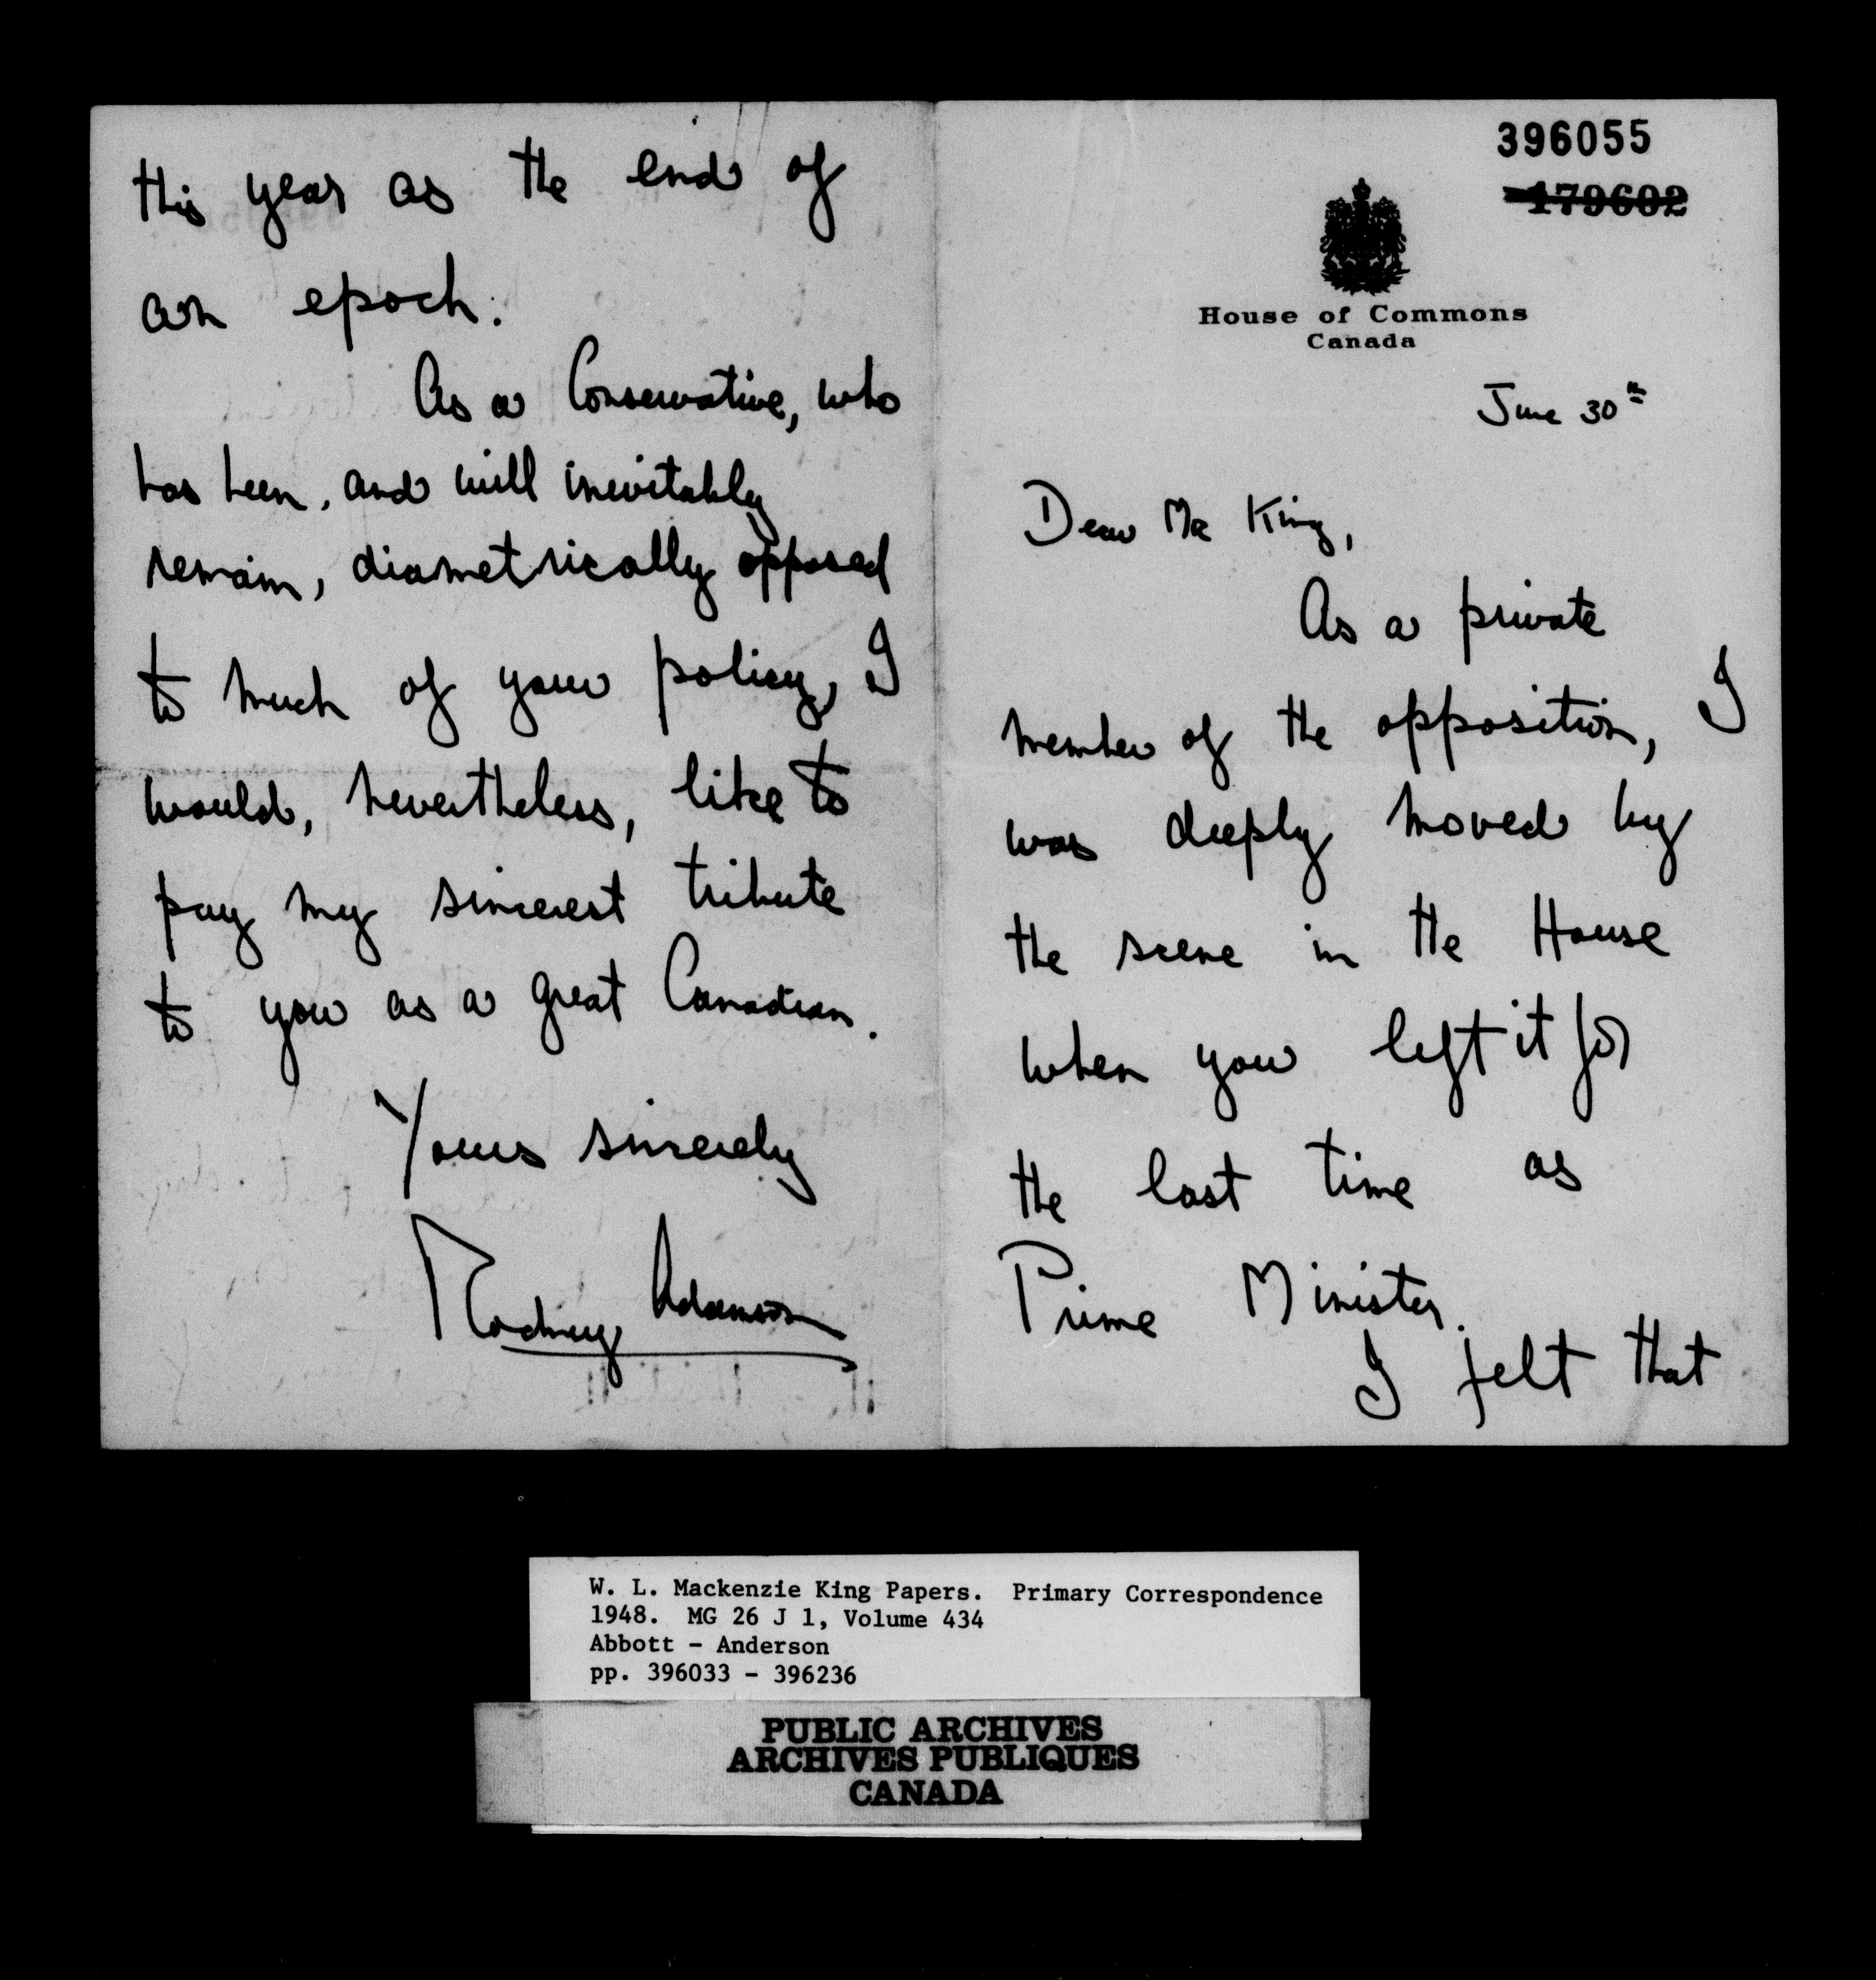 396055
179602
House of Commons
Canada
June 30th
Dear Mr King,
As a private
member of the opposition, I
was deeply moved by
the scene in the House
when you left it for
the last time as
Prime Minister.
I felt that
this year as the end of
an epoch.
As a Conservative, who
has been, and will inevitably
remain, diametrically opposed
to much of your policy, I
would, nevertheless, like to
pay my sincerest tribute
to you as a great Canadian.
Yours sincerely
Rodney Adamson
W. L. Mackenzie King Papers. Primary Correspondence
1948. MG 26 J 1, Volume 434
Abbott - Anderson
pp. 396033 - 396236
PUBLIC ARCHIVES
ARCHIVES PUBLIQUES
CANADA